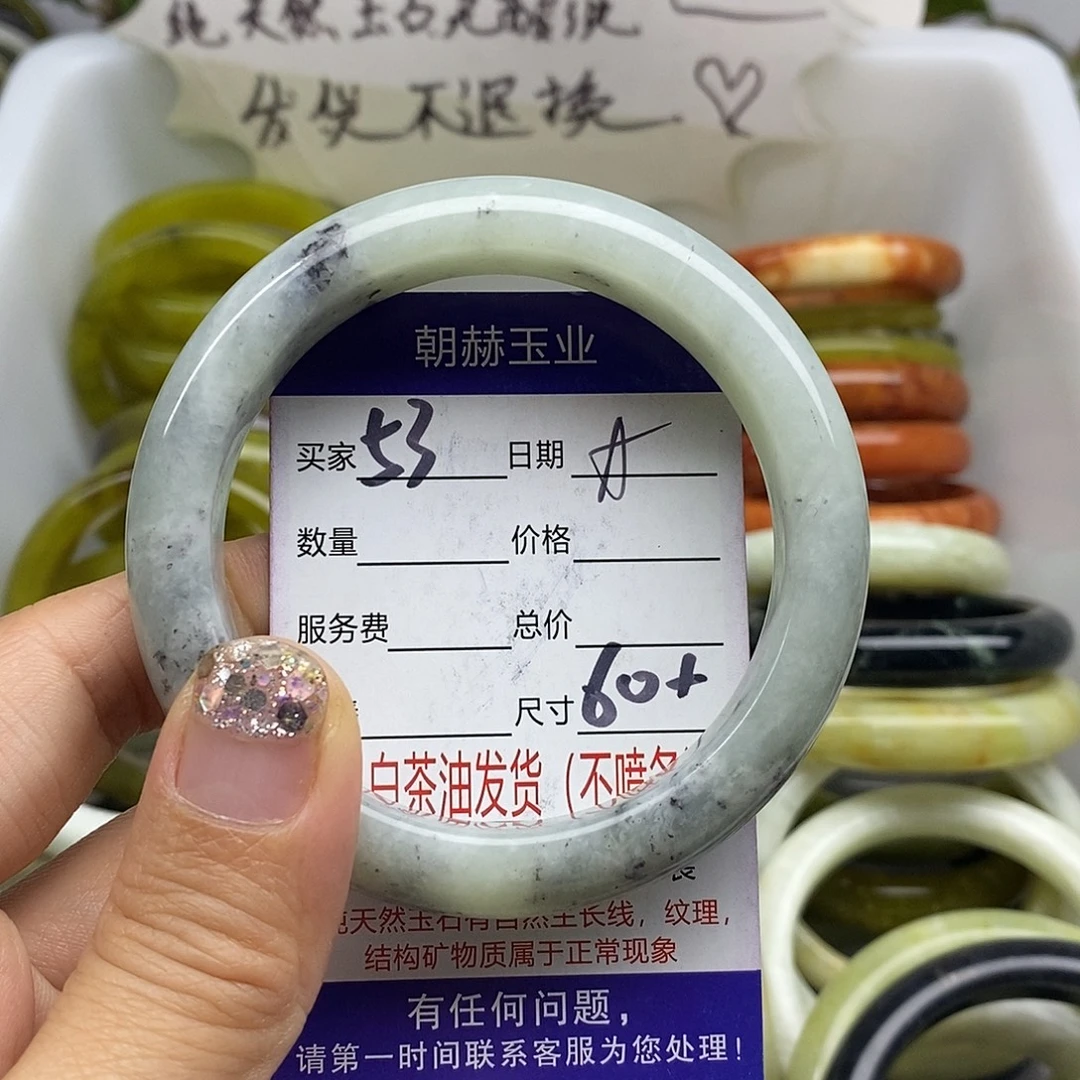 纯天然玉石无酸洗
售出不退换
朝赫玉业
买家 53 日期 A
数量 价格
服务费 总价
尺寸 60+
白茶油发货（不喷
纯天然玉石有自然生长线，纹理，
结构矿物质属于正常现象
有任何问题，
请第一时间联系客服为您处理！